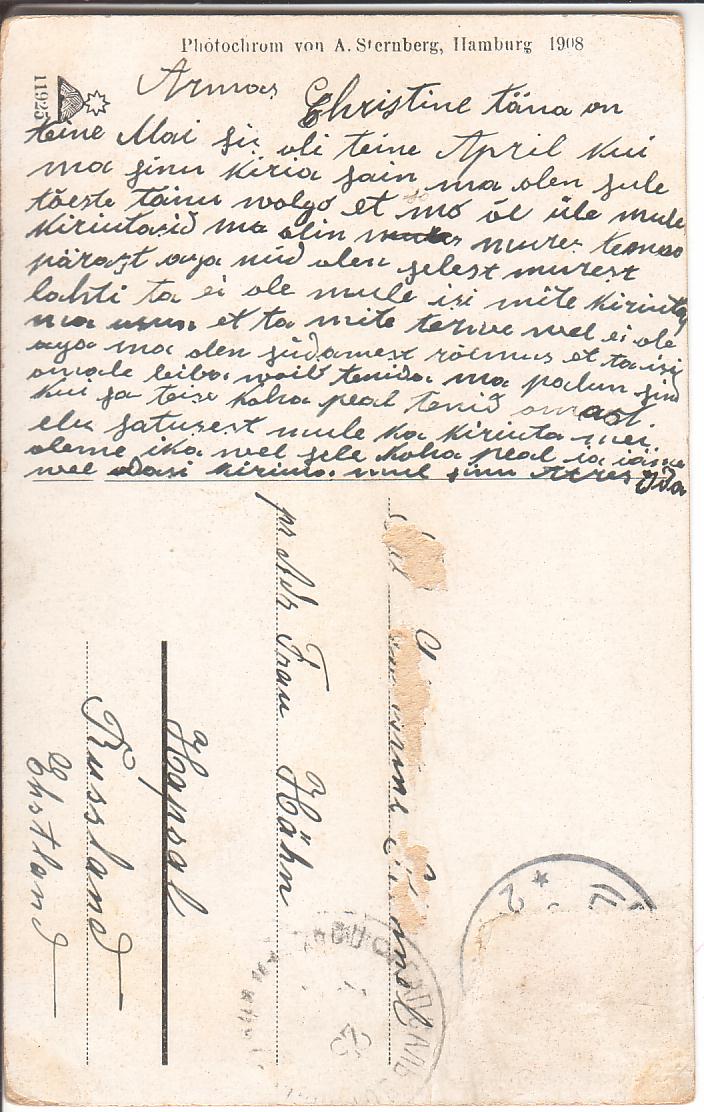 Photochrom von A. Sternberg, Hamburg 1908
11925
Armas Christine täna on
teine Mai ja oli teine April kui
ma sinu kiria sain ma olen sule
tõeste tänu wolgo et mo õe üle mule
kiriutasid ma olin mures temao
pärast aga nüd olen selest murest
lahti ta ei ole mule isi mite kiriutan
ma usun et ta mite terwe wel ei ole
aga ma olen südamest rõemus et ta isi
omale leiba woib tenida ma palun sind
kui sa teise koha peal tenid omast
elu saturest mule ka kiriuta mei
oleme ika wel sele koha peal ia iäme
wel edasi kiriuta mul sinu Atres Ida
pr Adr Frau Hähn
Hapsal
Russland
Ehstland